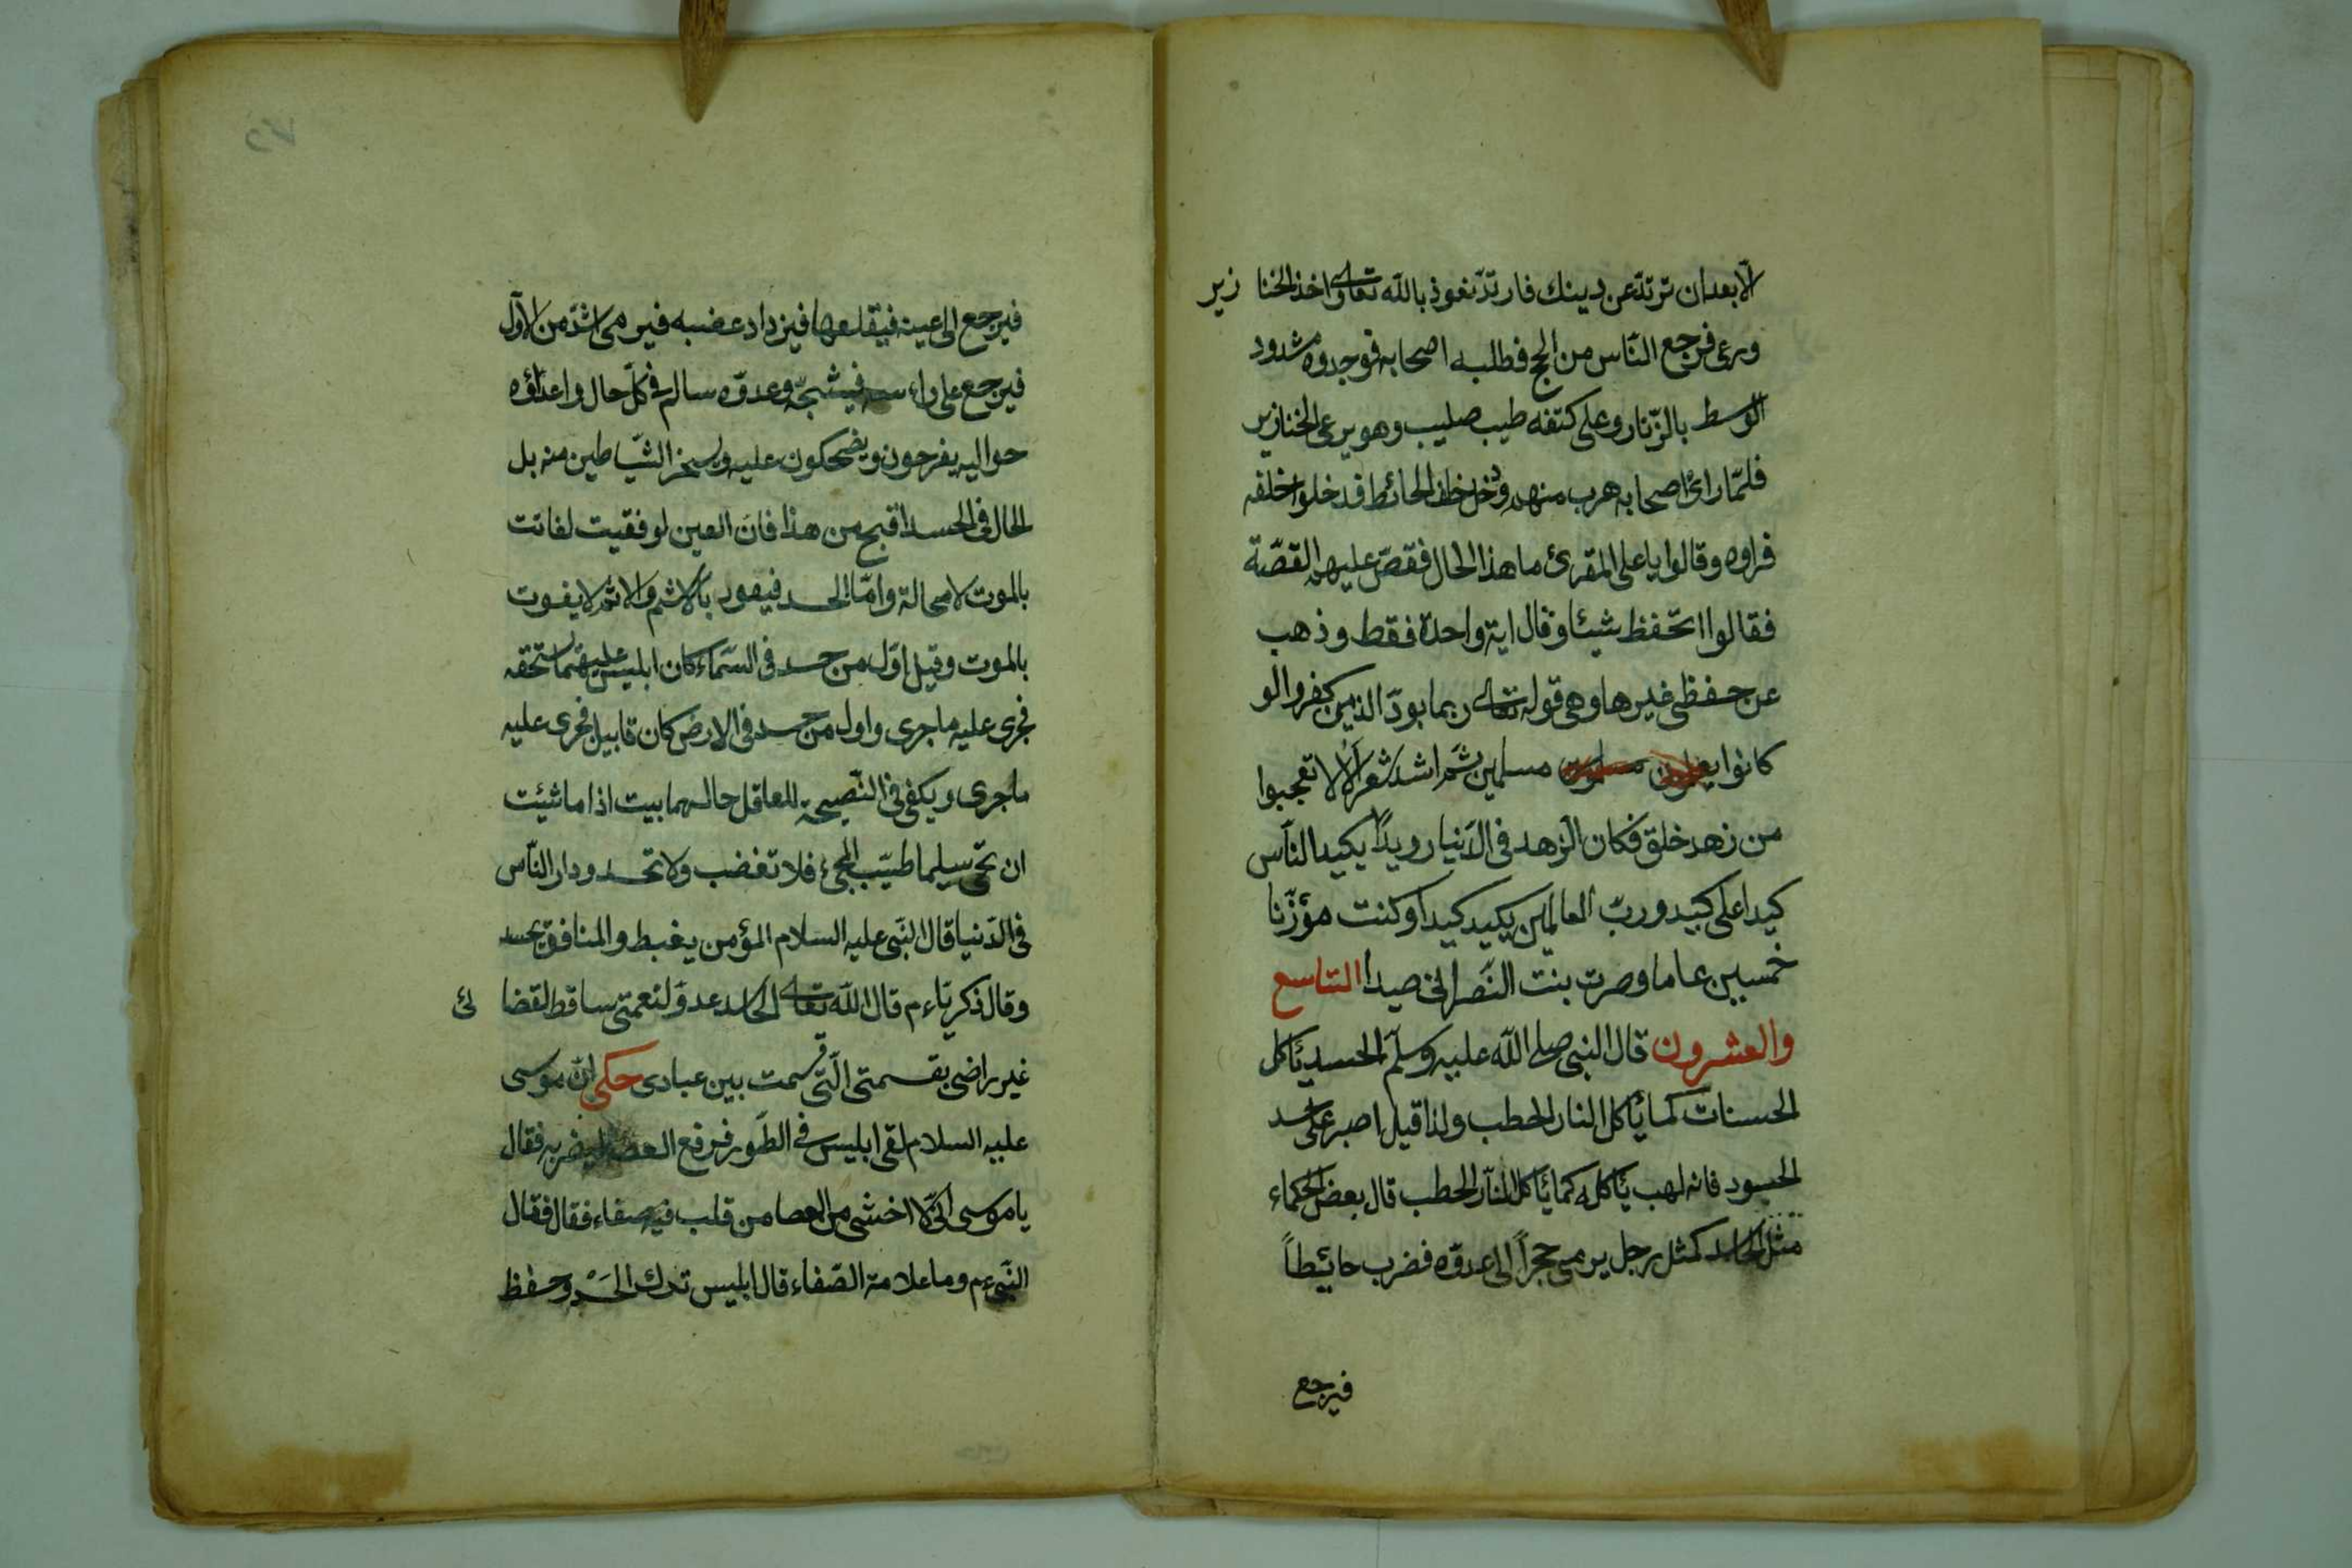 الّا بعد ان ترتدّ عن دينك فارتدّ نغوذ بالله تعالى واخذ الخنازير
ورعى فرجع النّاس من الحج فطلبه اصحابه فوجدوه مشدود
الوسط بالزّنار وعلى كتفه طيب صليب وهو يرعى الخنازير
فلمّا راىٔ اصحابه هرب منهم ودخل خلف الحائط فدخلوا خلفه
فراوه وقالوا يا على المقرئ ما هذا الحال فقصّ عليهم القصّة
فقالوا اتحفظ شيئا وقال اية واحدة فقط وذهب
عن حفظى غيرها وهى قوله تعالى ربما يودّ الذين كفروا لو
كانوا مسلمين ثم انشد شعر الا لا تعجبوا
من زهد خلق فكان الزهد فى الدّنيا رويدًا يكيد النّاس
كيدا على كيد وربّ العالمين يكيد كيدا وكنت مؤذّنا
خمسين عاما وصرت بنت النّصرانى صيدا التاسع
والعشرون قال النبى صلى الله عليه وسلّم الحسد يأكل
الحسنات كما يأكل النار الحطب ولذا قيل اصبر على حسد
الحسود فانه لهب يأكله كما يأكل النّار الحطب قال بعض الحكماء
مثل الحاسد كمثل رجل يرمى حجرًا الى عدوّه فضرب حائيطاً
فيرجع
٢٧
فيرجع الى عينه فيقلعها فيزداد غضبه فيرمى اشدّ من الاوّل
فيرجع على راءسه فيشجّه وعدوّه سالم فى كلّ حال واعداؤه
حواليه يفرحون ويضحكون عليه ويسخر الشّياطين منه بل
الحال فى الحسد اقبح من هذا فانّ العين لو فقيت لفاتت
بالموت لا محالة وامّا الحسد فيعود بالاثم والاثم لا يفوت
بالموت وقيل اوّل من حسد فى السّماء كان ابليس عليه ما استحقه
فجرى عليه ما جرى واول من حسد فى الارض كان قابيل فجرى عليه
ما جرى ويكفى فى النّصيحة للعاقل حالهما بيت اذا ما شئت
ان تحى سليما طيّب المحىء فلا تغضب ولا تحسد ودار النّاس
فى الدّنيا قال النّبى عليه السلام المؤمن يغبط والمنافق يحسد
وقال ذكريّاء م قال الله تعالى الحاسد عدوّ لنعمتى ساقط لقضائى
غير راضى بقسمتى الّتى قسمت بين عبادى حكى انّ موسى
عليه السلام لقى ابليس فى الطّور فرفع العصا ليضربه فقال
يا موسى انّى لا اخشى من العصا من قلب فيه صفاء فقال فقال
النّبىء م وما علامة الصّفاء قال ابليس ترك الحسد وحفظ